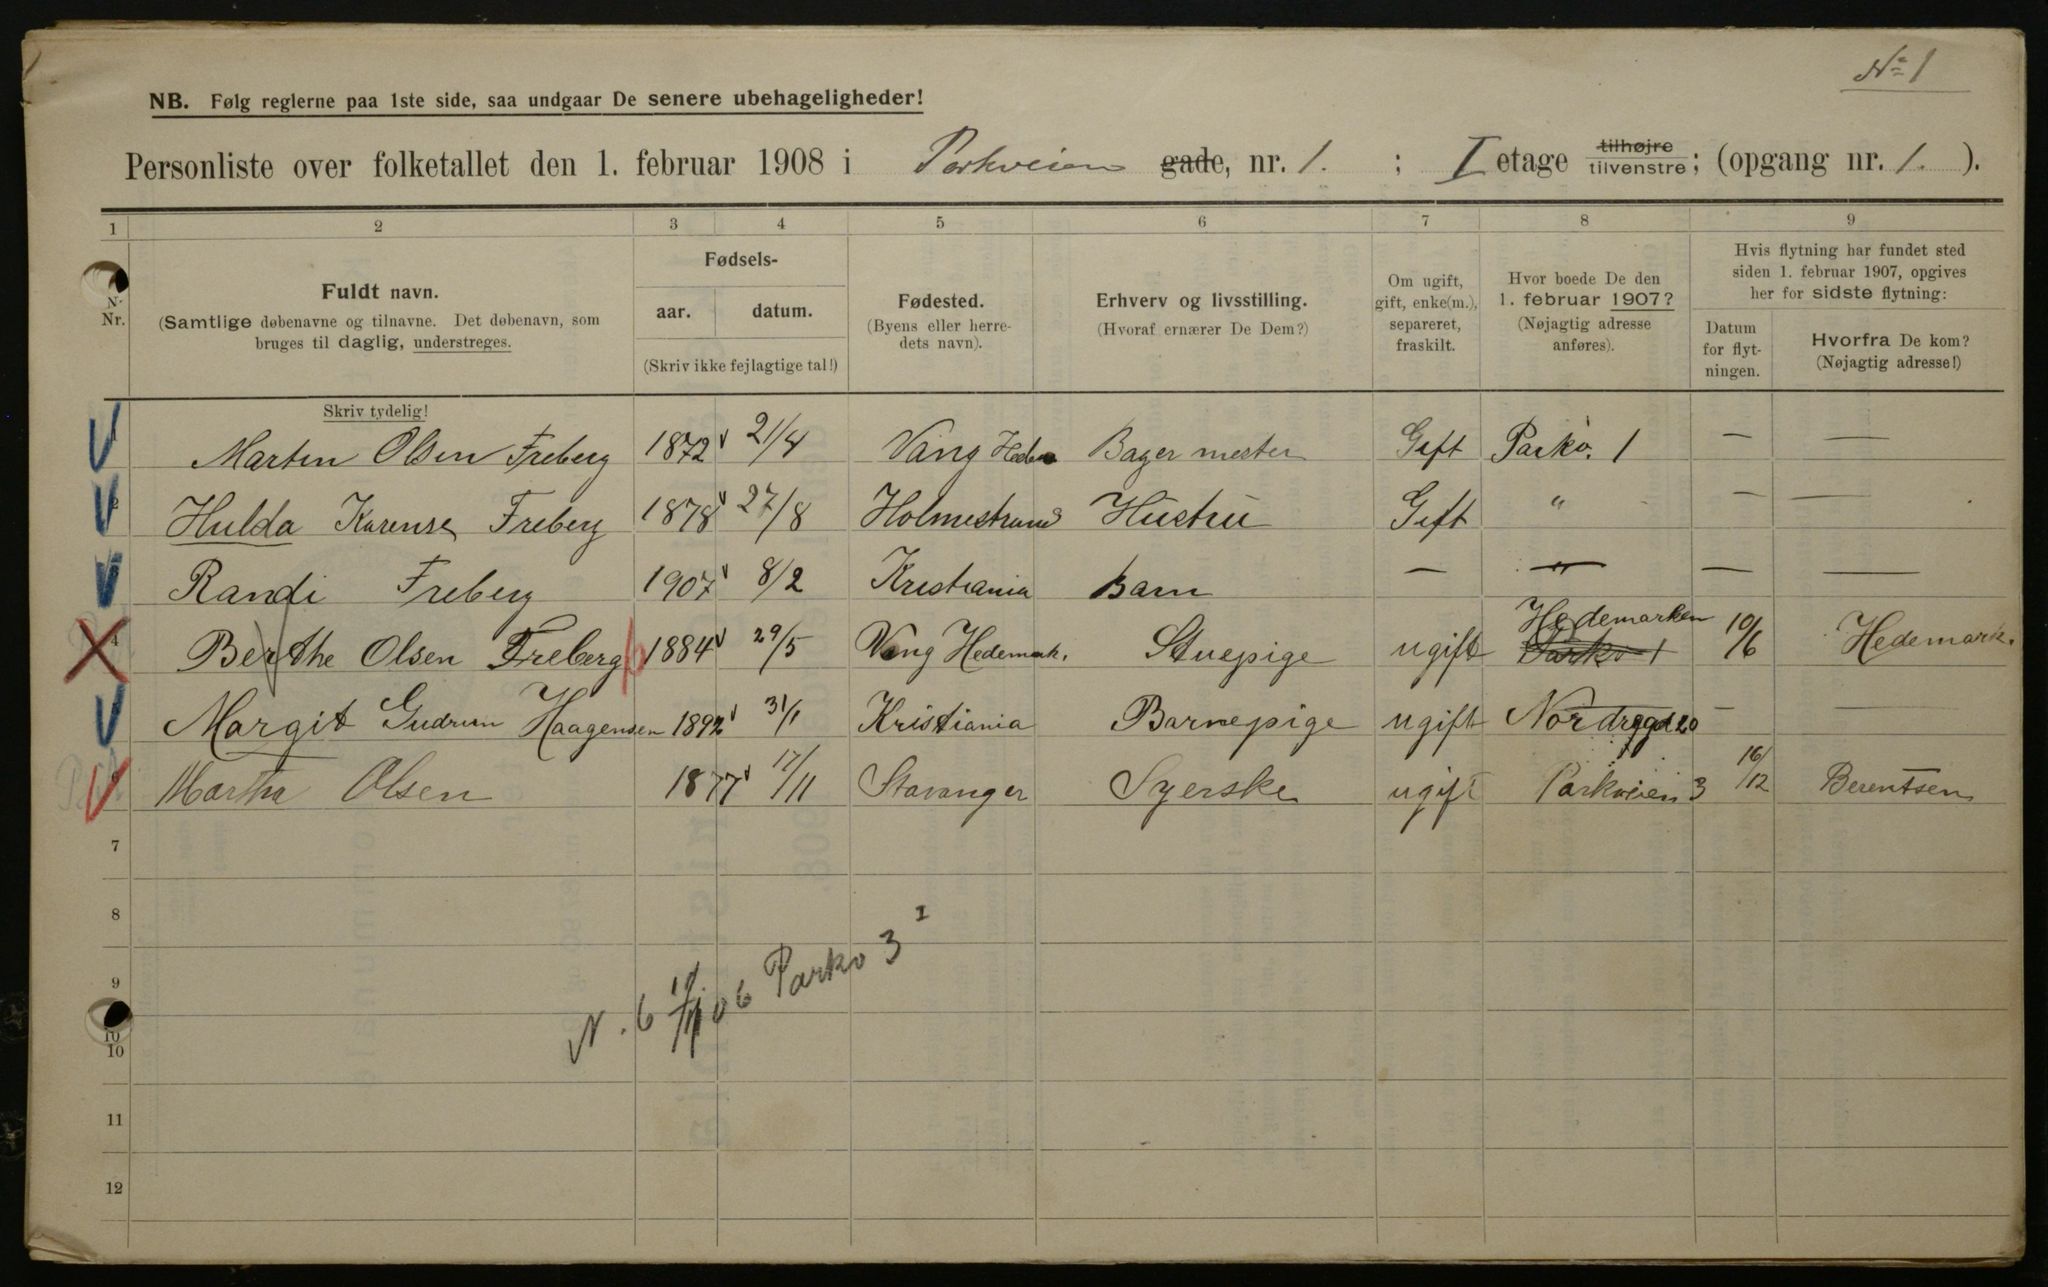 Nº 1
NB. Følg reglerne paa 1ste side, saa undgaar De senere ubehageligheder!
Personliste over folketallet den 1. februar 1908 i Parkveien gade, nr. 1. ; I etage tilhøjre tilvenstre; (opgang nr. 1. ).
1 2 3 4 5 6 7 8 9
N. Nr.
Fuldt navn.
(Samtlige døbenavne og tilnavne. Det døbenavn, som
bruges til daglig, understreges.
Skriv tydelig!
Fødsels-
aar. datum.
(Skriv ikke fejlagtige tal!)
Fødested.
(Byens eller herre-
dets navn).
Erhverv og livsstilling.
(Hvoraf ernærer De Dem?)
Om ugift,
gift, enke(m.),
separeret,
fraskilt.
Hvor boede De den
1. februar 1907?
(Nøjagtig adresse
anføres).
Hvis flytning har fundet sted
siden 1. februar 1907, opgives
her for sidste flytning:
Datum
for flyt-
ningen.
Hvorfra De kom?
(Nøjagtig adresse!)
Martin Olsen Freberg 1872 21/4 Vang Hedm Bager mester Gift Parkv. 1 — —
Hulda Karense Freberg 1878 27/8 Holmestrand Hustru Gift " — —
Randi Freberg 1907 8/2 Kristiania Barn — " — —
4 Berthe Olsen Freberg 1884 29/5 Vang Hedemark. Stuepige ugift Hedemarken Parkv 1 10/6 Hedemark.
Margit Gudrun Haagensen 1892 31/1 Kristiania Barnepige ugift Nordregd 20 — —
Martha Olsen 1877 17/11 Stavanger Syerske ugift Parkveien 3 16/12 Berentsen
7
8
9
10
10
11
12
N. 6 06 Parkv 3 I